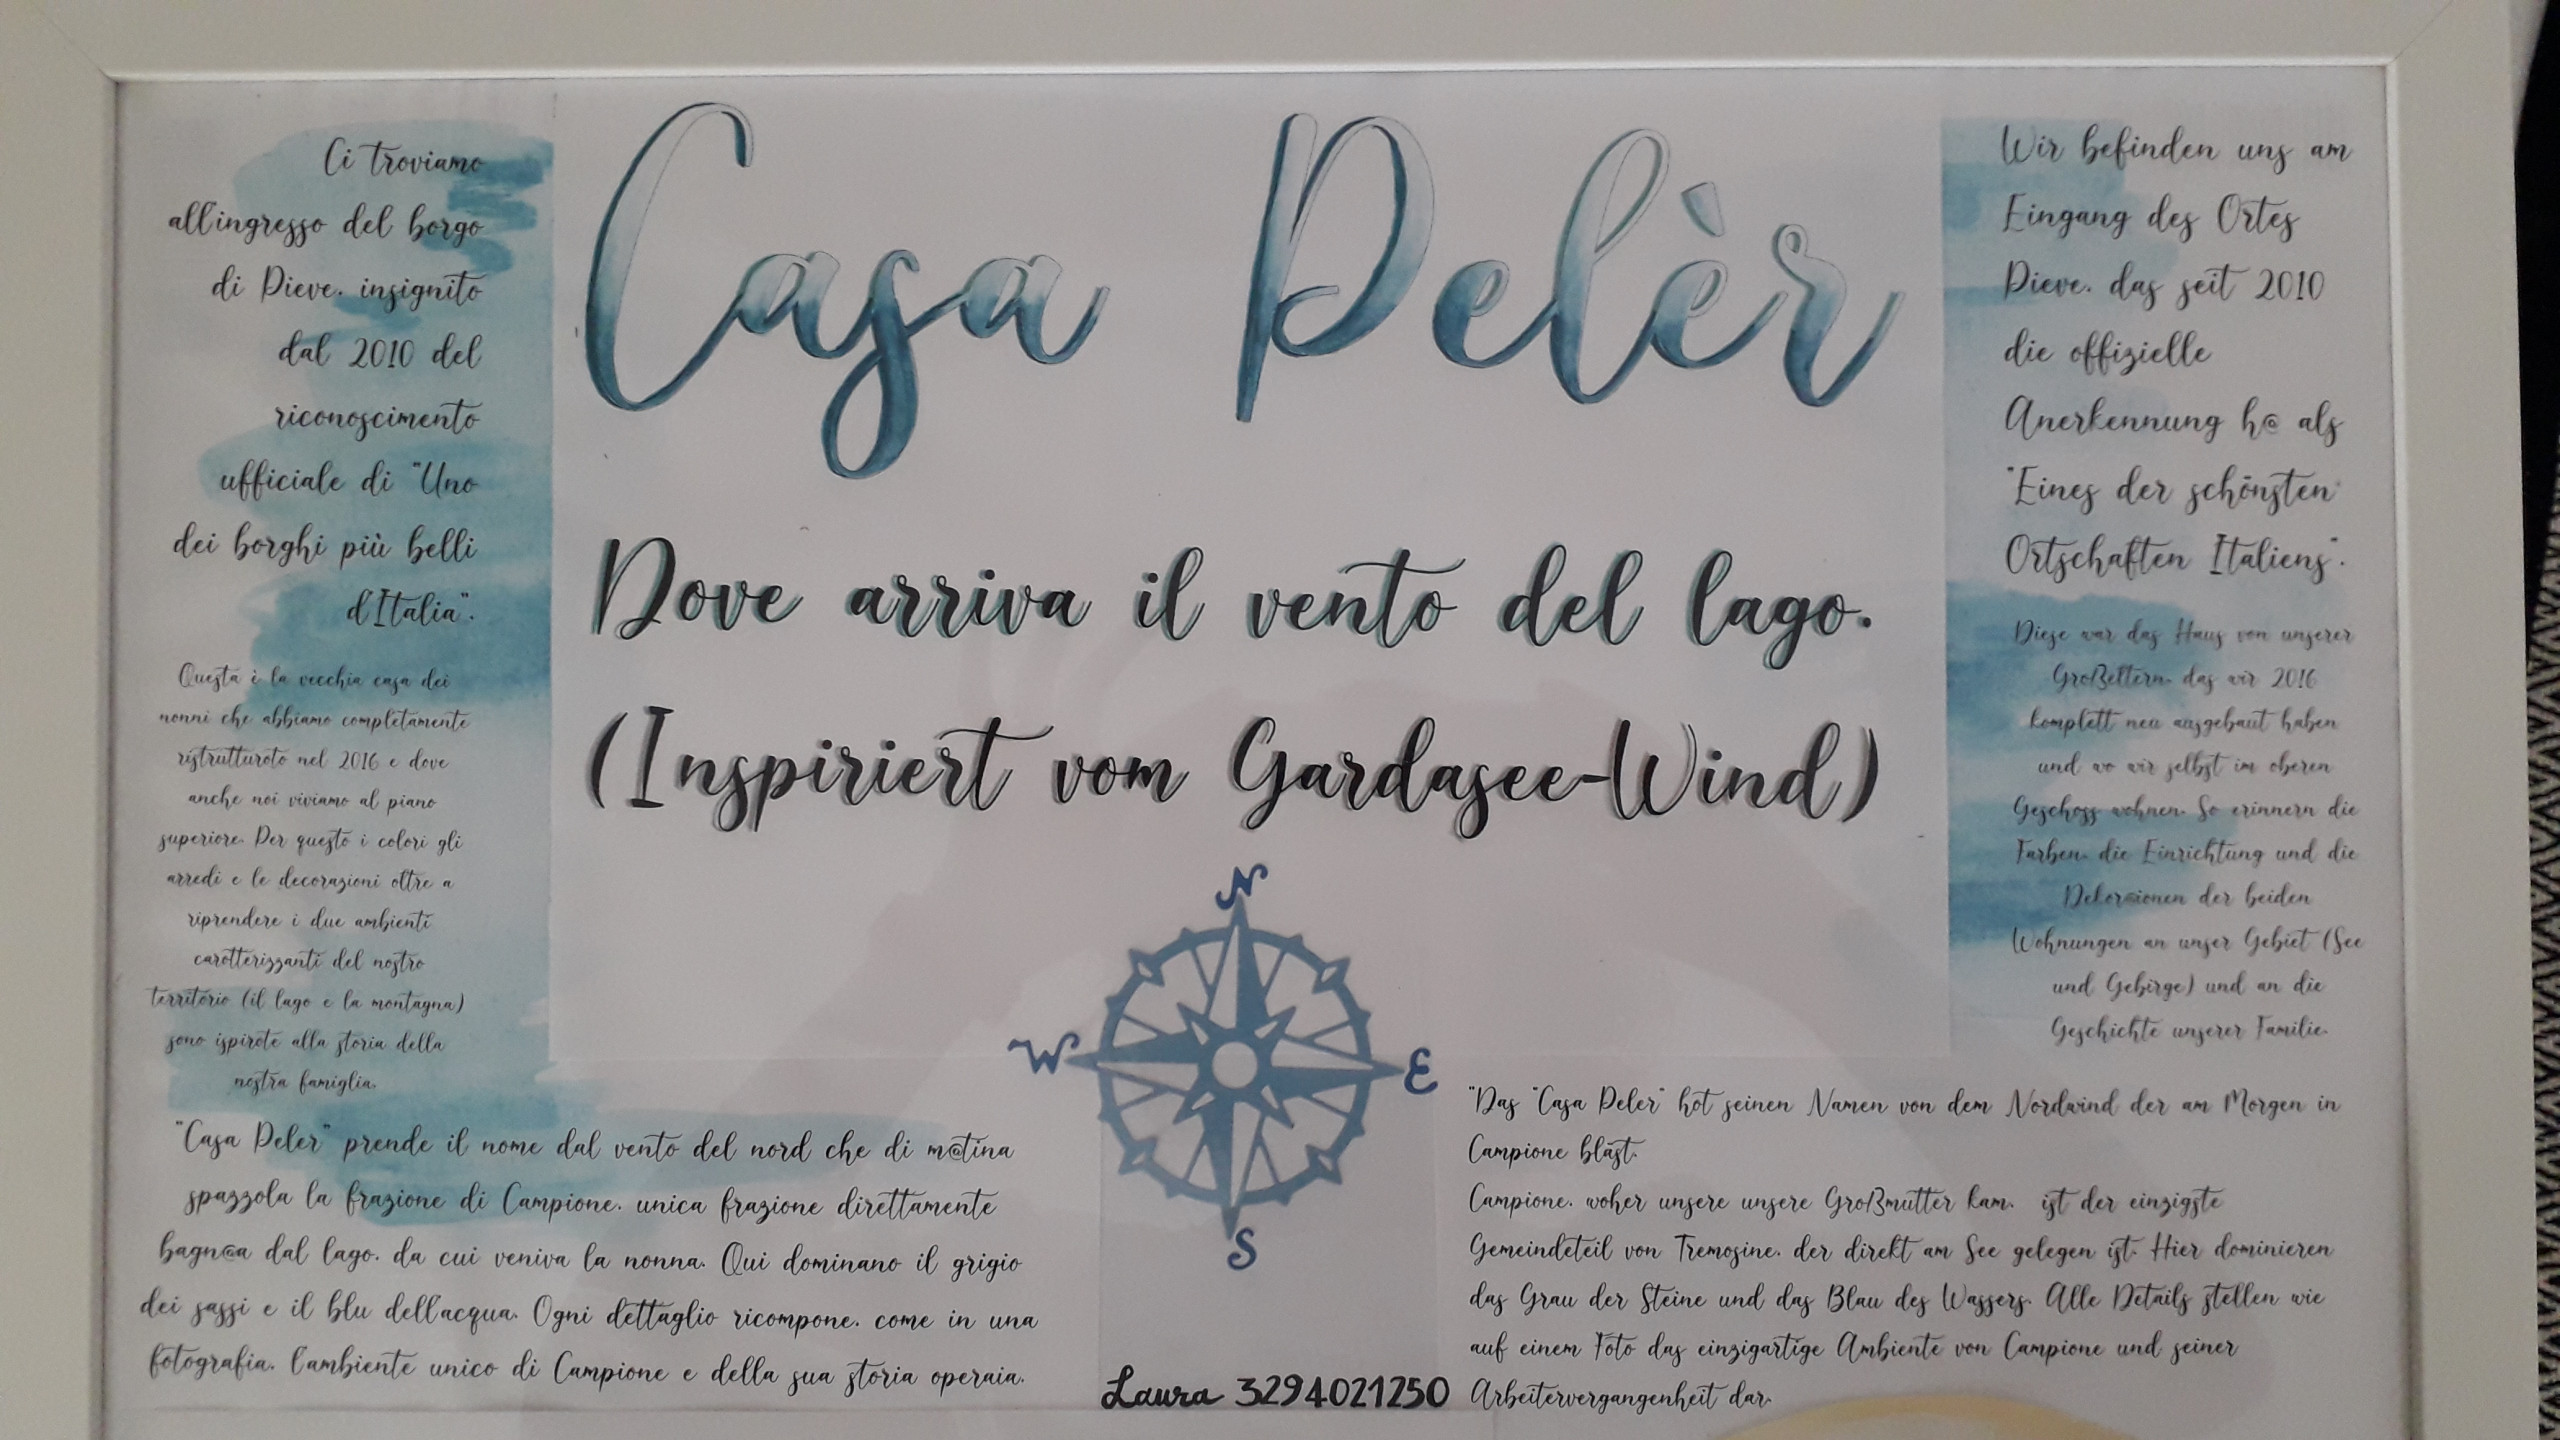 Casa Pelèr
Dove arriva il vento del lago.
(Inspiriert vom Gardasee-Wind)
Ci troviamo
all'ingresso del borgo
di Pieve, insignito
dal 2010 del
riconoscimento
ufficiale di "Uno
dei borghi più belli
d'Italia".
Questa è la vecchia casa dei
nonni che abbiamo completamente
ristrutturato nel 2016 e dove
anche noi viviamo al piano
superiore. Per questo i colori gli
arredi e le decorazioni oltre a
riprendere i due ambienti
caratterizzanti del nostro
territorio (il lago e la montagna)
sono ispirate alla storia della
nostra famiglia.
"Casa Peler" prende il nome dal vento del nord che di m@tina
spazzola la frazione di Campione, unica frazione direttamente
bagn@a dal lago, da cui veniva la nonna. Qui dominano il grigio
dei sassi e il blu dell'acqua. Ogni dettaglio ricompone, come in una
fotografia, l'ambiente unico di Campione e della sua storia operaia.
N
W
E
S
Laura 3294021250
Wir befinden uns am
Eingang des Ortes
Pieve, das seit 2010
die offizielle
Anerkennung h@ als
"Eines der schönsten
Ortschaften Italiens".
Diese war das Haus von unserer
Großeltern, das wir 2016
komplett neu ausgebaut haben
und wo wir selbst im oberen
Geschoss wohnen. So erinnern die
Farben, die Einrichtung und die
Dekor@ionen der beiden
Wohnungen an unser Gebiet (See
und Gebirge) und an die
Geschichte unserer Familie.
"Das "Casa Peler" hat seinen Namen von dem Nordwind der am Morgen in
Campione bläst.
Campione, woher unsere unsere Großmutter kam, ist der einzigste
Gemeindeteil von Tremosine, der direkt am See gelegen ist. Hier dominieren
das Grau der Steine und das Blau des Wassers. Alle Details stellen wie
auf einem Foto das einzigartige Ambiente von Campione und seiner
Arbeitervergangenheit dar.